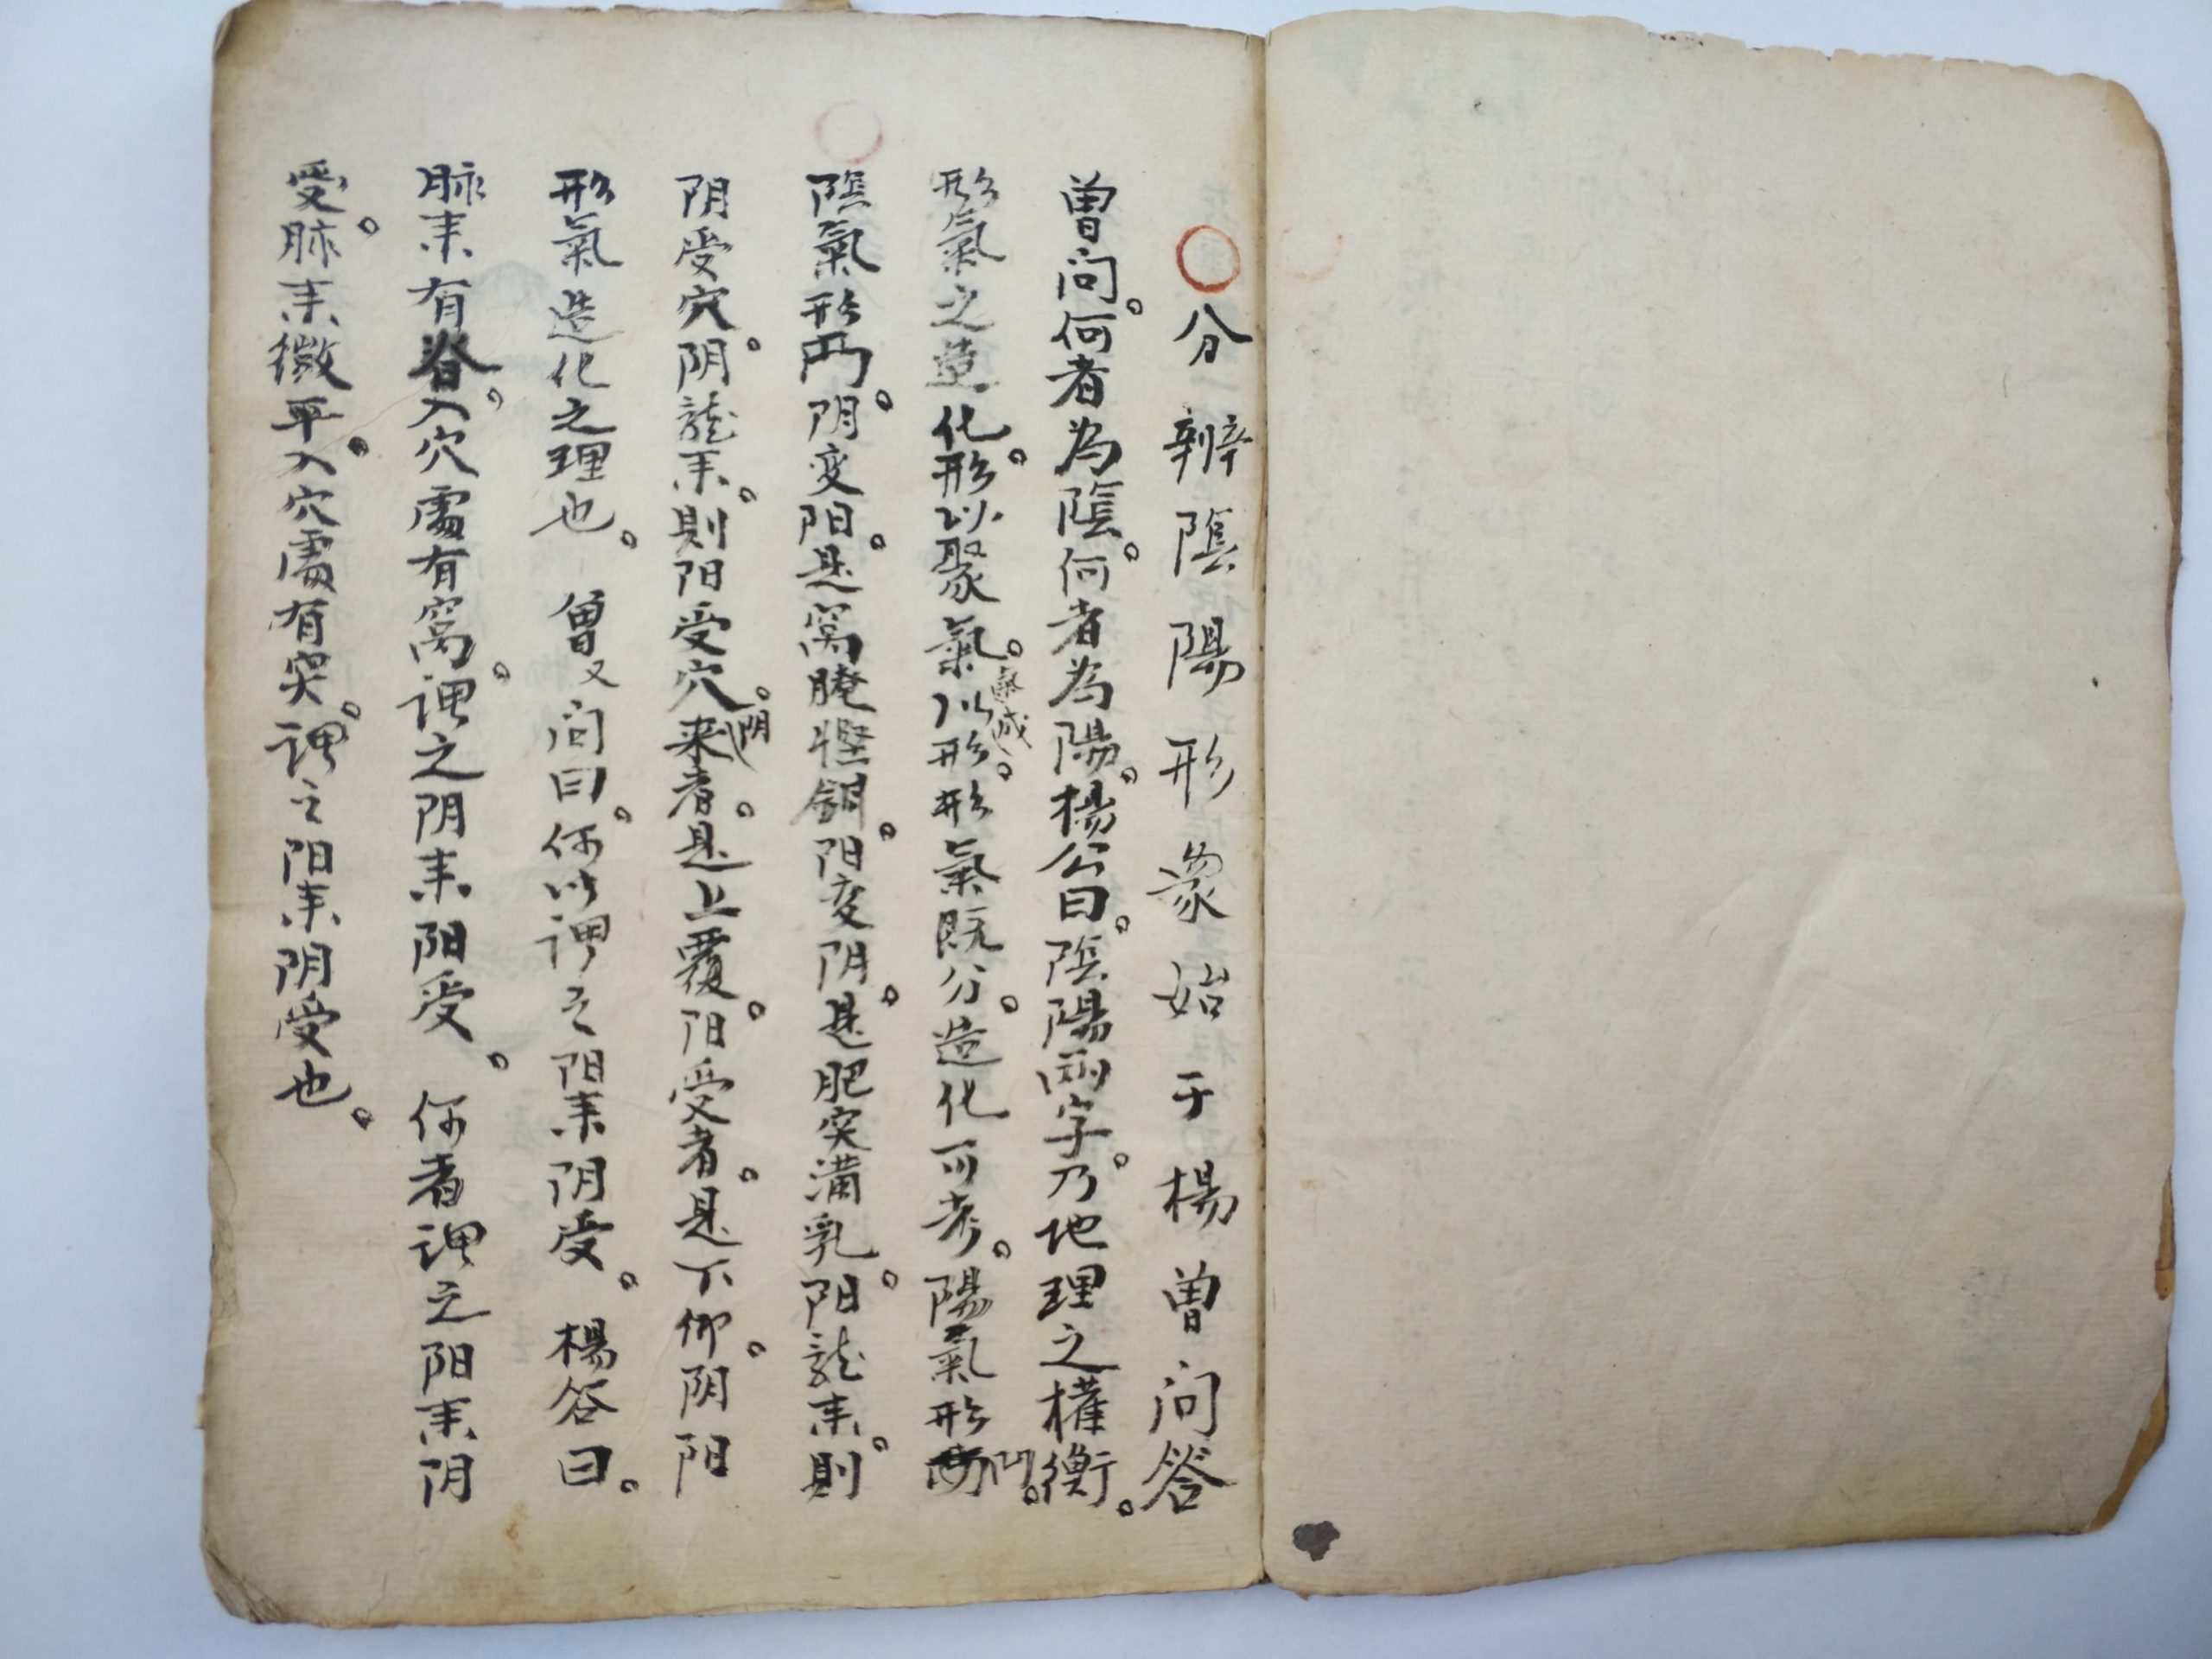 分辨陰陽形象始于楊曽问答
曽问。何者為陰。何者為陽。楊公曰。陰陽兩字。乃地理之權衡。
形氣之造化。形以聚氣。氣以成形。形氣既分。造化可考。陽氣形凹。
陰氣形凸。阴变阳。是窩腌。阳变阴。是肥突满乳。阳龍耒。則
阴受穴。阴龍耒。則阳受穴。阴来者。是上覆。阳受者。是下仰。阴阳
形氣造化之理也。曾又问曰。何以谓之阳耒阴受。楊答曰。
脉耒有脊。入穴處有窩。谓之阴耒阳受。何者谓之阳耒阴
受。脉耒微平。入穴處有突。谓之阳耒阴受也。